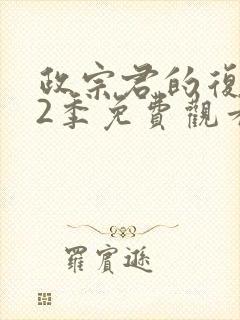 政宗君的復
2季免費觀看
羅賓遜